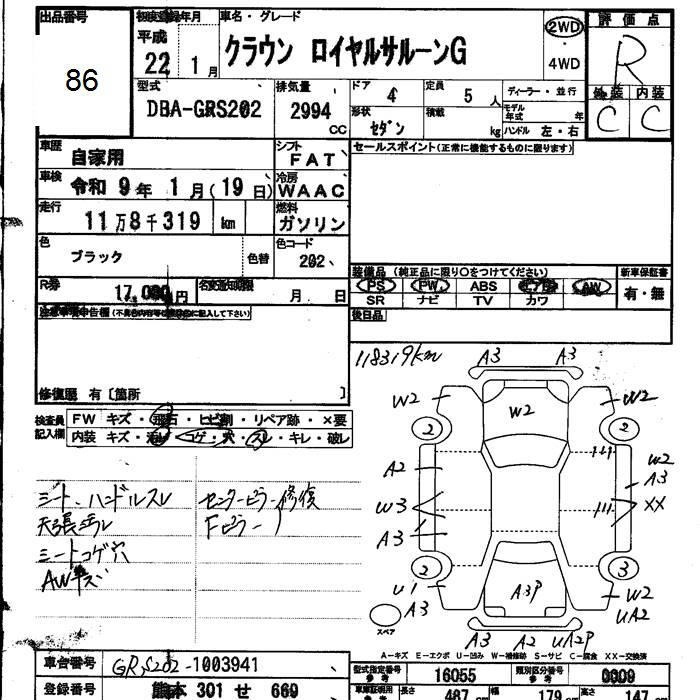 出品番号
86
初度登録年月
平成
22 1月
車名・グレード
クラウン ロイヤルサルーンG
2WD
・
4WD
評価点
R
外装 内装
C C
型式
DBA-GRS202
排気量
2994
CC
ドア
4
定員
5 人
ディーラー・並行
形状
セダン
積載
kg
モデル年式 年
ハンドル 左・右
車歴
自家用
シフト
FAT
車検
令和 9年 1月(19日)
冷房
WAAC
走行
11万8千319 km
燃料
ガソリン
色
ブラック
色替
色コード
202
R券
17,000円
名変通知期限
月 日
セールスポイント(正常に機能するものに限ります)
装備品 (純正品に限り○をつけてください)
新車保証書
PS PW ABS AW
SR ナビ TV カワ
有・無
後日品
注意事項申告欄(不具合内容等は具体的に記入して下さい)
修復歴 有〔箇所 〕
118319km
検査員
記入欄
FW キズ・飛石・ヒビ割・リペア跡・×要
内装 キズ・汚レ・コゲ・穴・スレ・キレ・破レ
シート、ハンドルスレ
天張汚レ
シートコゲ穴
AWキズ
センターピラー修復
Fピラー〃
A3 A3
W2 W2 W2
2 2
A2 W2
A3
W3 XX
A3
2 3
U1 A3P W2
A3 UA2
スペア
A3 A2 UA2P
A-キズ E-エクボ U-凹み W-補修跡 S-サビ C-腐食 XX-交換済
車台番号
GRS202-1003941
登録番号
熊本 301 せ 660
型式指定番号
参考
16055
類別区分番号
参考
0009
車庫証明用
参考
長さ
487 cm
幅
179 cm
高さ
147 cm